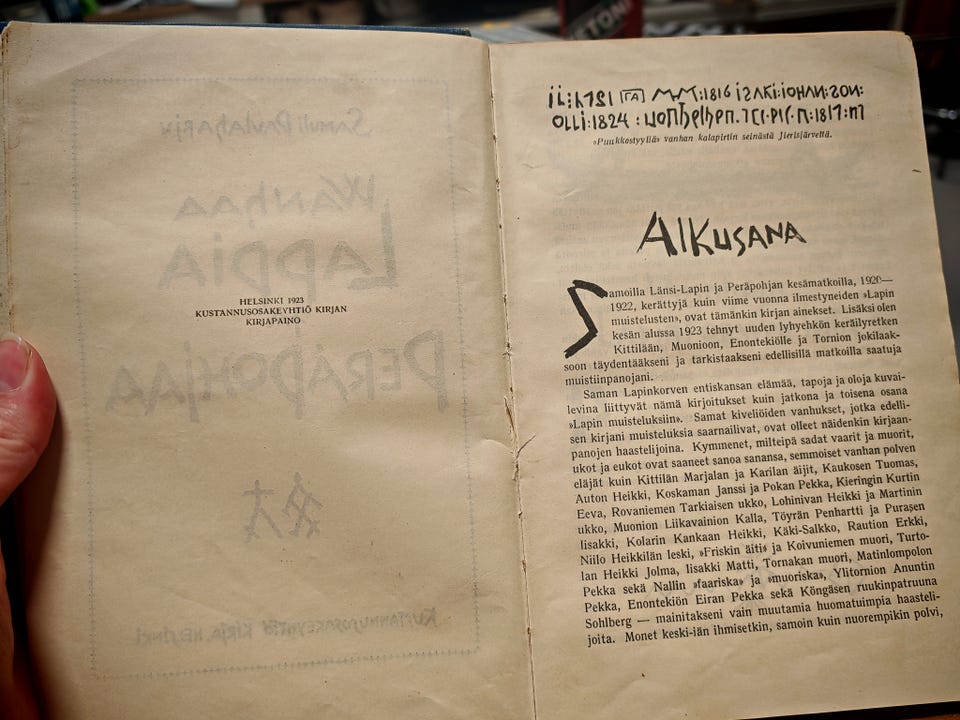 HELSINKI 1923
KUSTANNUSOSAKEYHTIÖ KIRJAN
KIRJAPAINO
MM:1816 iSAKi:iOHAN:SON:
OLLi:1824 :
»Puukkostyyliä» vanhan kalapirtin seinästä Jierisjärveltä.
ALKUSANA
Samoilla Länsi-Lapin ja Peräpohjan kesämatkoilla, 1920—
1922, kerättyjä kuin viime vuonna ilmestyneiden »Lapin
muistelusten», ovat tämänkin kirjan ainekset. Lisäksi olen
kesän alussa 1923 tehnyt uuden lyhyehkön keräilyretken
Kittilään, Muonioon, Enontekiölle ja Tornion jokilaak-
soon täydentääkseni ja tarkistaakseni edellisillä matkoilla saatuja
muistiinpanojani.
Saman Lapinkorven entiskansan elämää, tapoja ja oloja kuvai-
levina liittyvät nämä kirjoitukset kuin jatkona ja toisena osana
»Lapin muisteluksiin». Samat kiveliöiden vanhukset, jotka edelli-
sen kirjani muisteluksia saarnailivat, ovat olleet näidenkin kirjaan-
panojen haastelijoina. Kymmenet, milteipä sadat vaarit ja muorit,
ukot ja eukot ovat saaneet sanoa sanansa, semmoiset vanhan polven
eläjät kuin Kittilän Marjalan ja Karilan äijit, Kaukosen Tuomas,
Auton Heikki, Koskaman Janssi ja Pokan Pekka, Kieringin Kurtin
Eeva, Rovaniemen Tarkiaisen ukko, Lohinivan Heikki ja Martinin
ukko, Muonion Liikavainion Kalla, Töyrän Penhartti ja Purasen
Iisakki, Kolarin Kankaan Heikki, Käki-Salkko, Raution Erkki,
Niilo Heikkilän leski, »Friskin äiti» ja Koivuniemen muori, Turto-
lan Heikki Jolma, Iisakki Matti, Tornakan muori, Matinlompolon
Pekka sekä Nallin »faariska» ja »muoriska», Ylitornion Anuntin
Pekka, Enontekiön Eiran Pekka sekä Köngäsen ruukinpatruuna
Sohlberg — mainitakseni vain muutamia huomatuimpia haasteli-
joita. Monet keski-iän ihmisetkin, samoin kuin nuorempikin polvi,